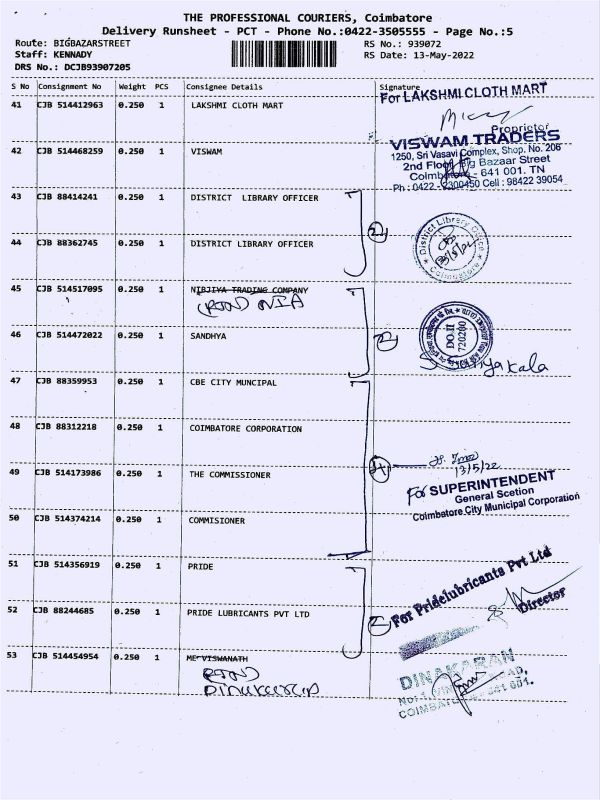 THE PROFESSIONAL COURIERS, Coimbatore
Delivery Runsheet - PCT - Phone No.:0422-3505555 - Page No.:5
Route: BIGBAZARSTREET
Staff: KENNADY
DRS No.: DCJB93907205
RS No.: 939072
RS Date: 13-May-2022
S No Consignment No Weight PCS Consignee Details Signature
41 CJB 514412963 0.250 1 LAKSHMI CLOTH MART
For LAKSHMI CLOTH MART
Proprietor
42 CJB 514468259 0.250 1 VISWAM
VISWAM TRADERS
1250, Sri Vasavi Complex, Shop. No. 206
2nd Floor Big Bazaar Street
Coimbatore - 641 001. TN
Ph : 0422 - 2300450 Cell : 98422 39054
43 CJB 88414241 0.250 1 DISTRICT LIBRARY OFFICER
44 CJB 88362745 0.250 1 DISTRICT LIBRARY OFFICER
2
District Library Office
Coimbatore
45 CJB 514517095 0.250 1 NIBJIYA TRADING COMPANY
46 CJB 514472022 0.250 1 SANDHYA
2
DO.II
720200
47 CJB 88359953 0.250 1 CBE CITY MUNCIPAL
48 CJB 88312218 0.250 1 COIMBATORE CORPORATION
49 CJB 514173986 0.250 1 THE COMMISSIONER
4
13/5/22
For SUPERINTENDENT
General Scetion
Coimbatore City Municipal Corporation
50 CJB 514374214 0.250 1 COMMISIONER
51 CJB 514356919 0.250 1 PRIDE
52 CJB 88244685 0.250 1 PRIDE LUBRICANTS PVT LTD
2
For Pridelubricants Pvt Ltd
Director
53 CJB 514454954 0.250 1 ME VISWANATH
DINAKARAN